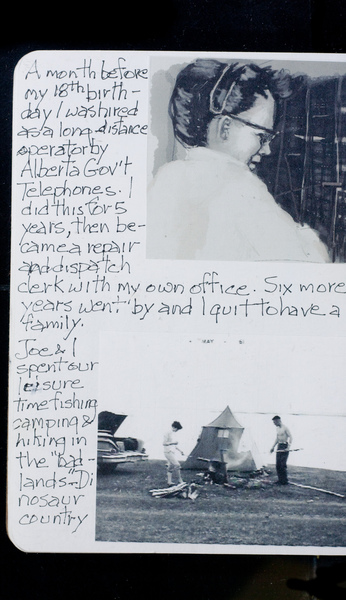 A month before
my 18th birth-
day I was hired
as a long distance
operator by
Alberta Gov't
Telephones. I
did this for 5
years, then be-
came a repair
and dispatch
clerk with my own office. Six more
years went by and I quit to have a
family.
Joe & I
spent our
leisure
time fishing
camping &
hiking in
the "bad-
lands"-Di
nosaur
country
MAY